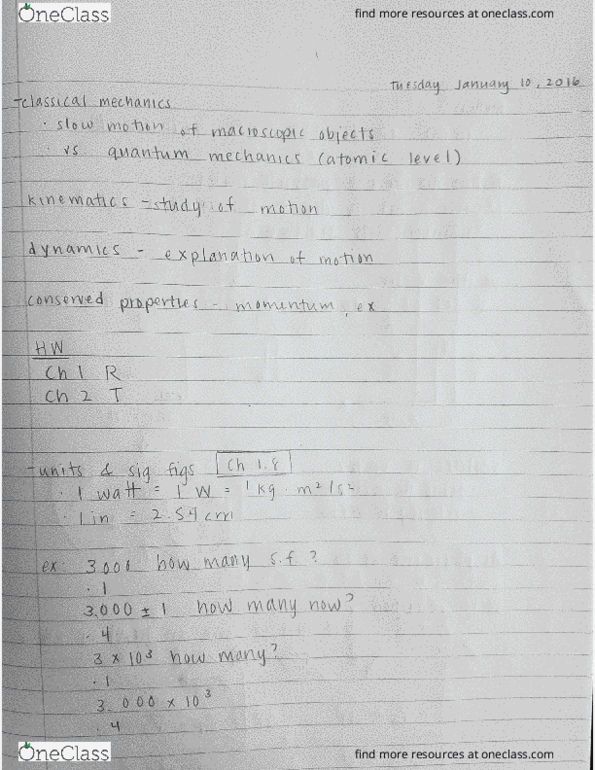 OneClass
find more resources at oneclass.com
Tuesday January 10, 2016
-classical mechanics
· slow motion of macroscopic objects
· vs quantum mechanics (atomic level)
kinematics - study of motion
dynamics - explanation of motion
conserved properties - momentum, ex
HW
Ch 1 R
Ch 2 T
-units & sig figs Ch 1.8
· 1 watt = 1 W = 1 kg · m²/s²
· 1 in = 2.54 cm
ex: 3000 how many s.f?
· 1
3,000 ± 1 how many now?
· 4
3 × 10³ how many?
· 1
3.000 × 10³
· 4
OneClass
find more resources at oneclass.com